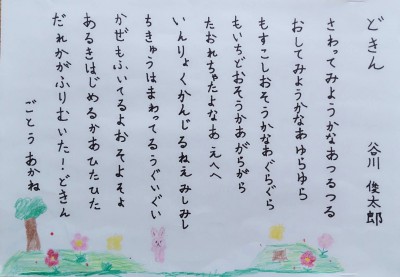 どきん
谷川 俊太郎
さわってみようかなあつるつる
おしてみようかなあゆらゆら
もすこしおそうかなあぐらぐら
もいちどおそうかあがらがら
たおれちゃったよなあえへへ
いんりょくかんじるねえみしみし
ちきゅうはまわってるうぐいぐい
かぜもふいてるよおそよそよ
あるきはじめるかあひたひた
だれかがふりむいた！どきん
ごとう あかね